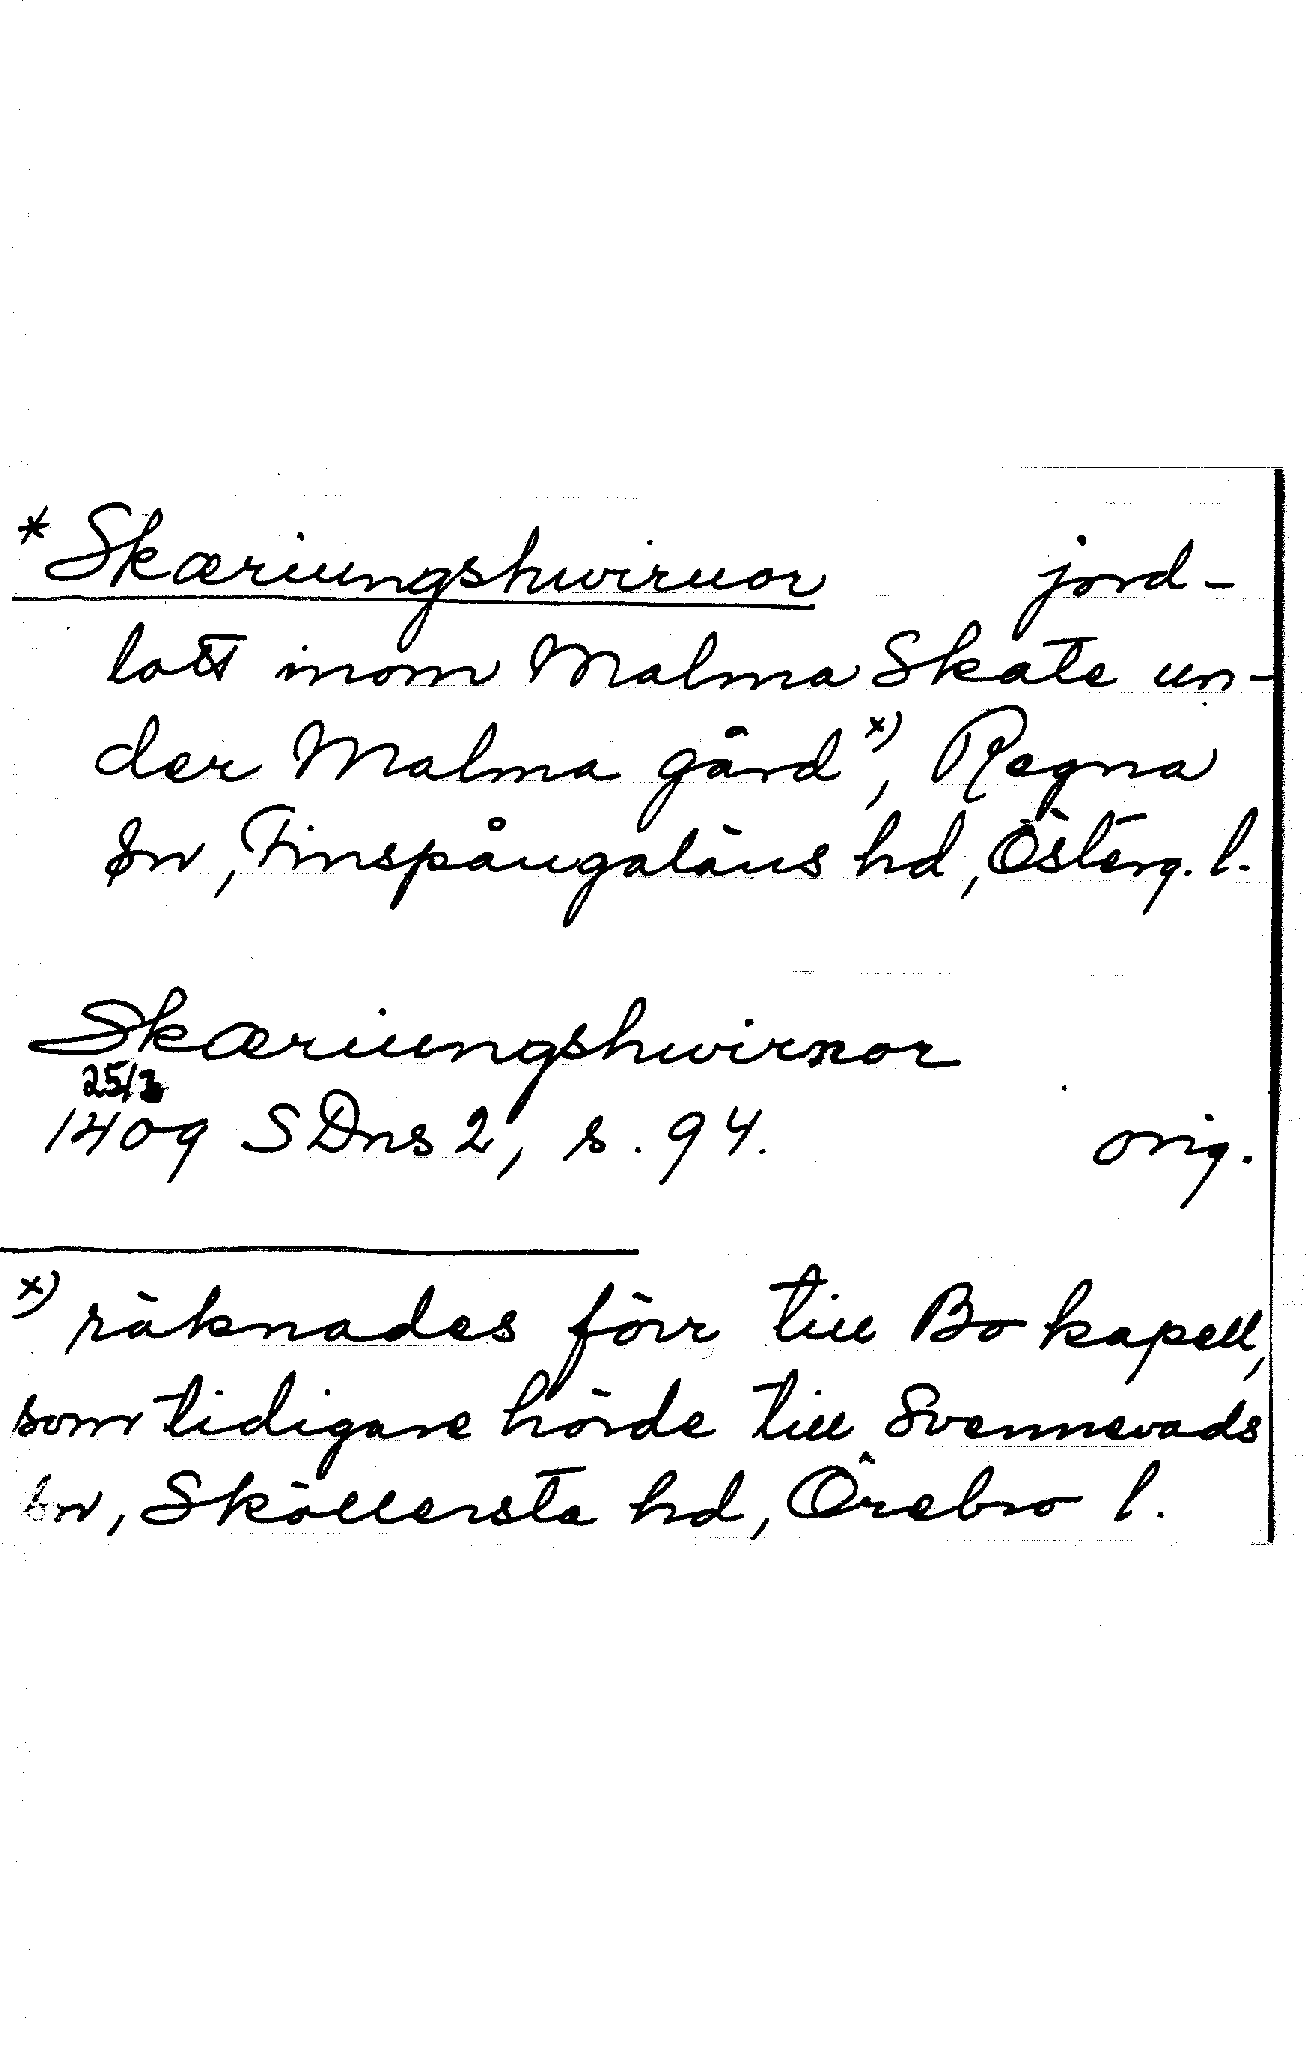 * Skæriungshwirnor jord-
lott inom Malma Skate un-
der Malma gård x), Regna
sn, Finspångaläns hd, Österg. l.
Skæriungshwirnor
25/3
1409 SDns 2, s. 94. orig.
x) räknades förr till Bo kapell,
som tidigare hörde till Svennevads
sn, Sköllersta hd, Örebro l.